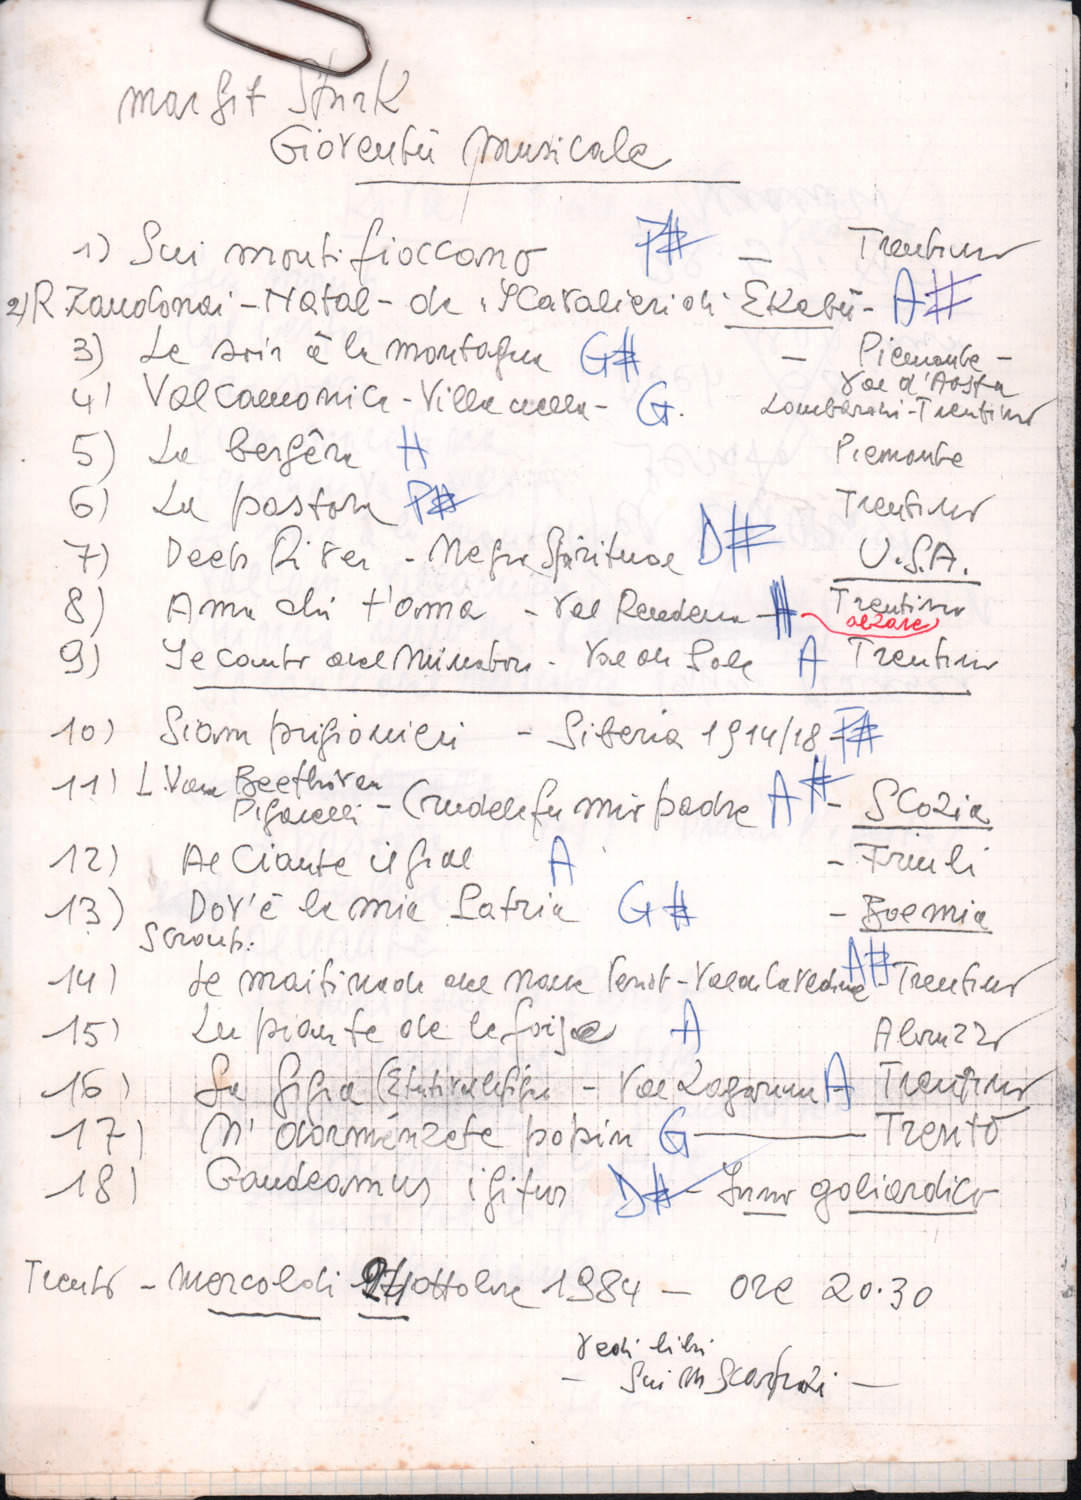 Margit Stark
Gioventù musicale
1) Sui monti fioccano F# - Trentino
2) R Zandonai - Natal - da "I Cavalieri di Ekebù - A#
3) La sirir à la montagna G# - Piemonte -
Val d'Aosta
4) Valcamonica - Villanella - G. Lombardia - Trentino
5) La bergéra H Piemonte
6) La pastora F# Trentino
7) Deep River - Negro Spiritual D# U.S.A.
8) Ama chi t'ama - Val Rendena - H Trentino
alzare
9) Le cante del Minatore - Val di Sole A Trentino
10) Siam prigionieri - Siberia 1914/18 - F#
11) L. Van Beethoven
Pigarelli - Crudele fu mio padre A# - Scozia
12) Al Ciante il gial A - Friuli
13) Dov'è la mia Patria G# - Boemia
Scroub:
14) La maitinada del Nane - Val di Cavedine A# - Trentino
15) La piante de le foje A Abruzzo
16) La Gigia - Val Lagarina A Trentino
17) N' dorménzete popin G Trento
18) Gaudeamus igitur D# - Inno goliardico
Trento - Mercoledì 24 ottobre 1984 - ore 20.30
vedi libri
- Sui M Scarpazi -